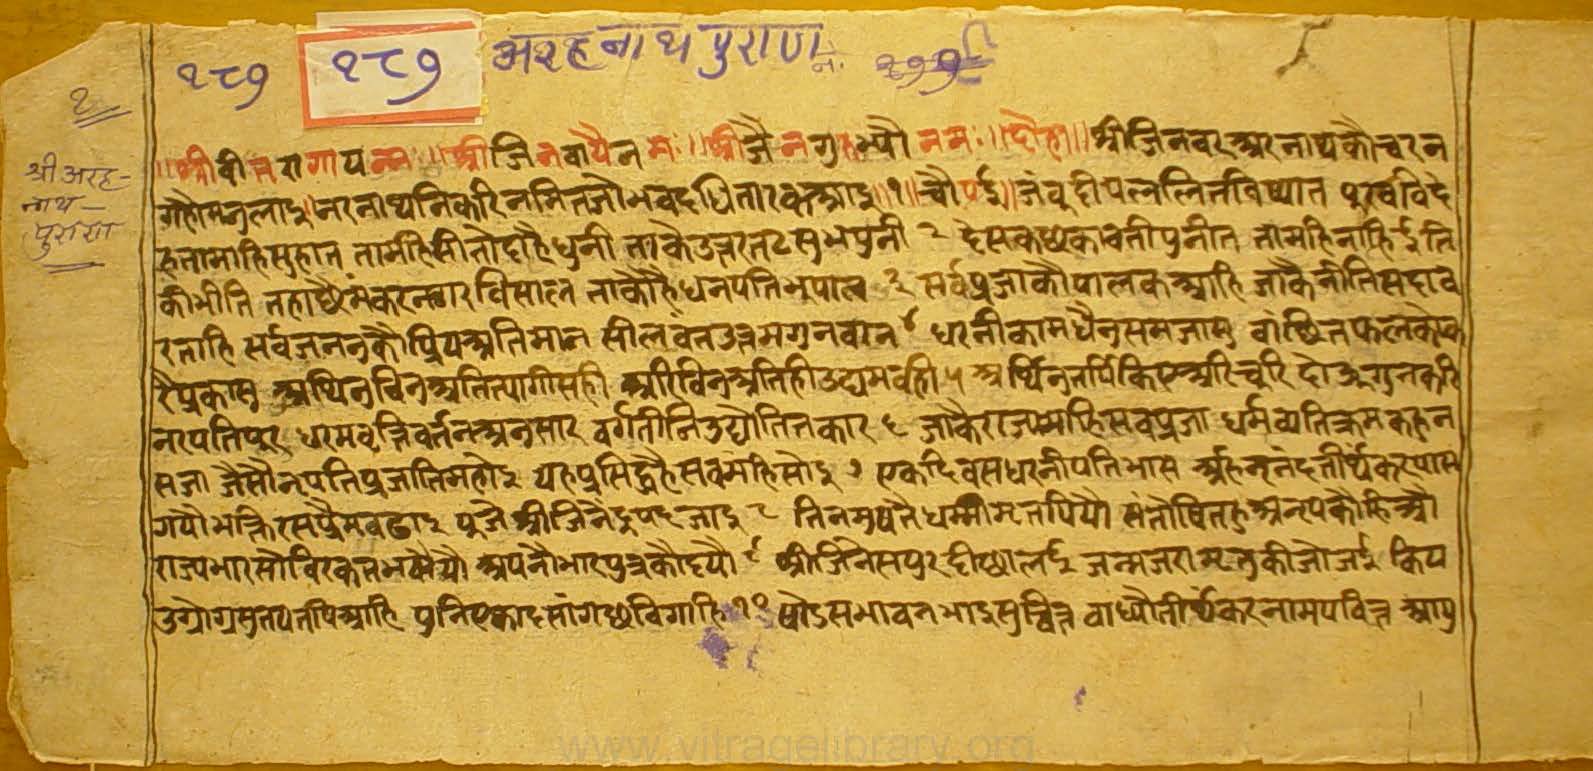 १८७ १८७ अरहनाथपुराण नं.
१
श्री अरह-
नाथ-
पुराण
॥श्री वीतरागाय नमः॥श्रीजिनवायैनमः॥श्रीजैनगुरुभ्यौ नमः॥दोहा॥श्रीजिनवरअरनाथकौचरन
नरनाथनिकरिनमितजोभवदधितारकआइ॥१॥चौपई॥जंबूदीपललितविष्यात पूरवविदे
हतामाहिसुहात तामहिसीतोदाहैधुनी ताकैउत्तरतटसुभपुनी २ देसकछकावतीपुनीत
तहाछेमंकरनग्रविसाल ताकौहैधनपतिभूपाल ३ सर्वप्रजाकौपालकआहि जाकैनीतिसदाव
रताहि सर्वजननकौप्रियअतिमान सीलवंतउत्तमगुनवान ४ धरनीकामधैनुसमजासु वांछितफलकोक
रैप्रकास अर्थिनविनअतित्यागीसही अरिविनअतिहीउद्यमवही ५ दोऊगुनकरि
नरपतिपूर धरमवृत्तिवर्तनअनुसार वर्गतीनिउद्यौतितकार ६ जाकैराज्यमाहिसवप्रजा धर्मव्यतिक्रमकहुन
सजा जैसौनृपतिप्रजातिमहोइ यहप्रसिद्धहैसवमहिसोइ ७ एकदिवसधरनीपतिभास अर्हनृनंदतीर्थकरपास
गयौभक्तिरसप्रेमवढाइ पूजैश्रीजिनैंद्रपदजाइ ८ तिनमुषतैधर्मामृतपियौ
राज्यभारसौविरकतभयौ अपनौभारपुत्रकौदयौ ९ श्रीजिनेसपुरदीछालई जन्मजरामृतुकीजोजई किय
उग्रोग्रसुतपतपिआहि पुनिएकादसांगअवगाहि १० षोडसभावनभाइसुचित्त वाध्यौतीर्थकरनामपवित्त आयु
www.vitragelibrary.org